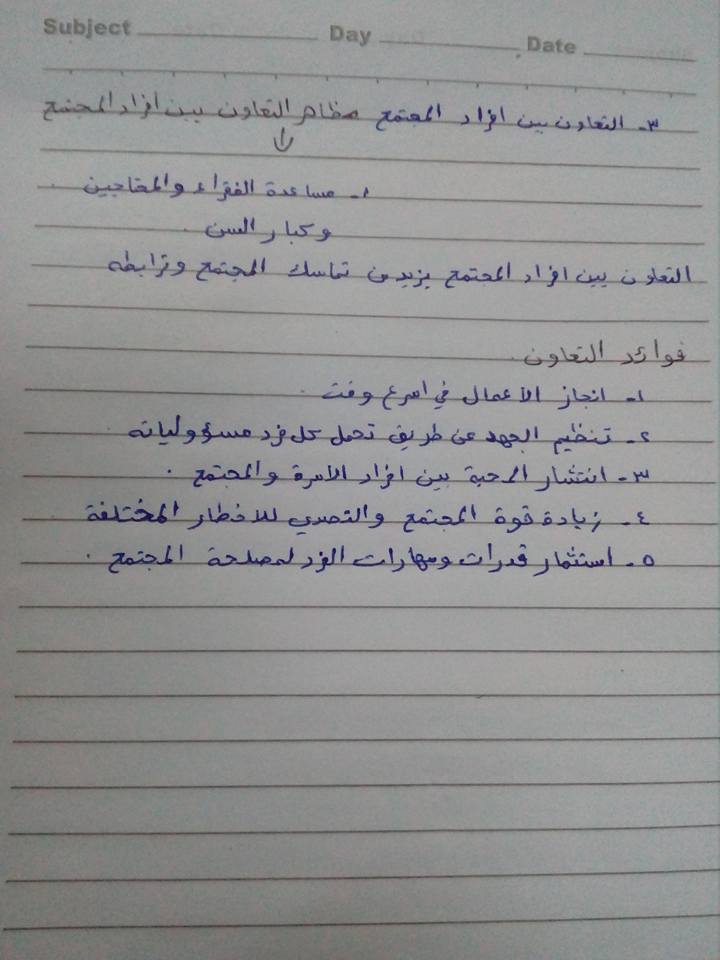 Subject Day Date
٣- التعاون بين افراد المجتمع مظاهر التعاون بين افراد المجتمع
١- مساعدة الفقراء والمحتاجين
وكبار السن.
التعاون بين افراد المجتمع يزيد من تماسك المجتمع وترابطه
فوائد التعاون.
١- انجاز الأعمال في اسرع وقت.
٢- تنظيم الجهد عن طريق تحمل كل فرد مسؤولياته
٣- انتشار المحبة بين افراد الأسرة والمجتمع.
٤- زيادة قوة المجتمع والتصدي للاخطار المختلفة
٥- استثمار قدرات ومهارات الفرد لمصلحة المجتمع.